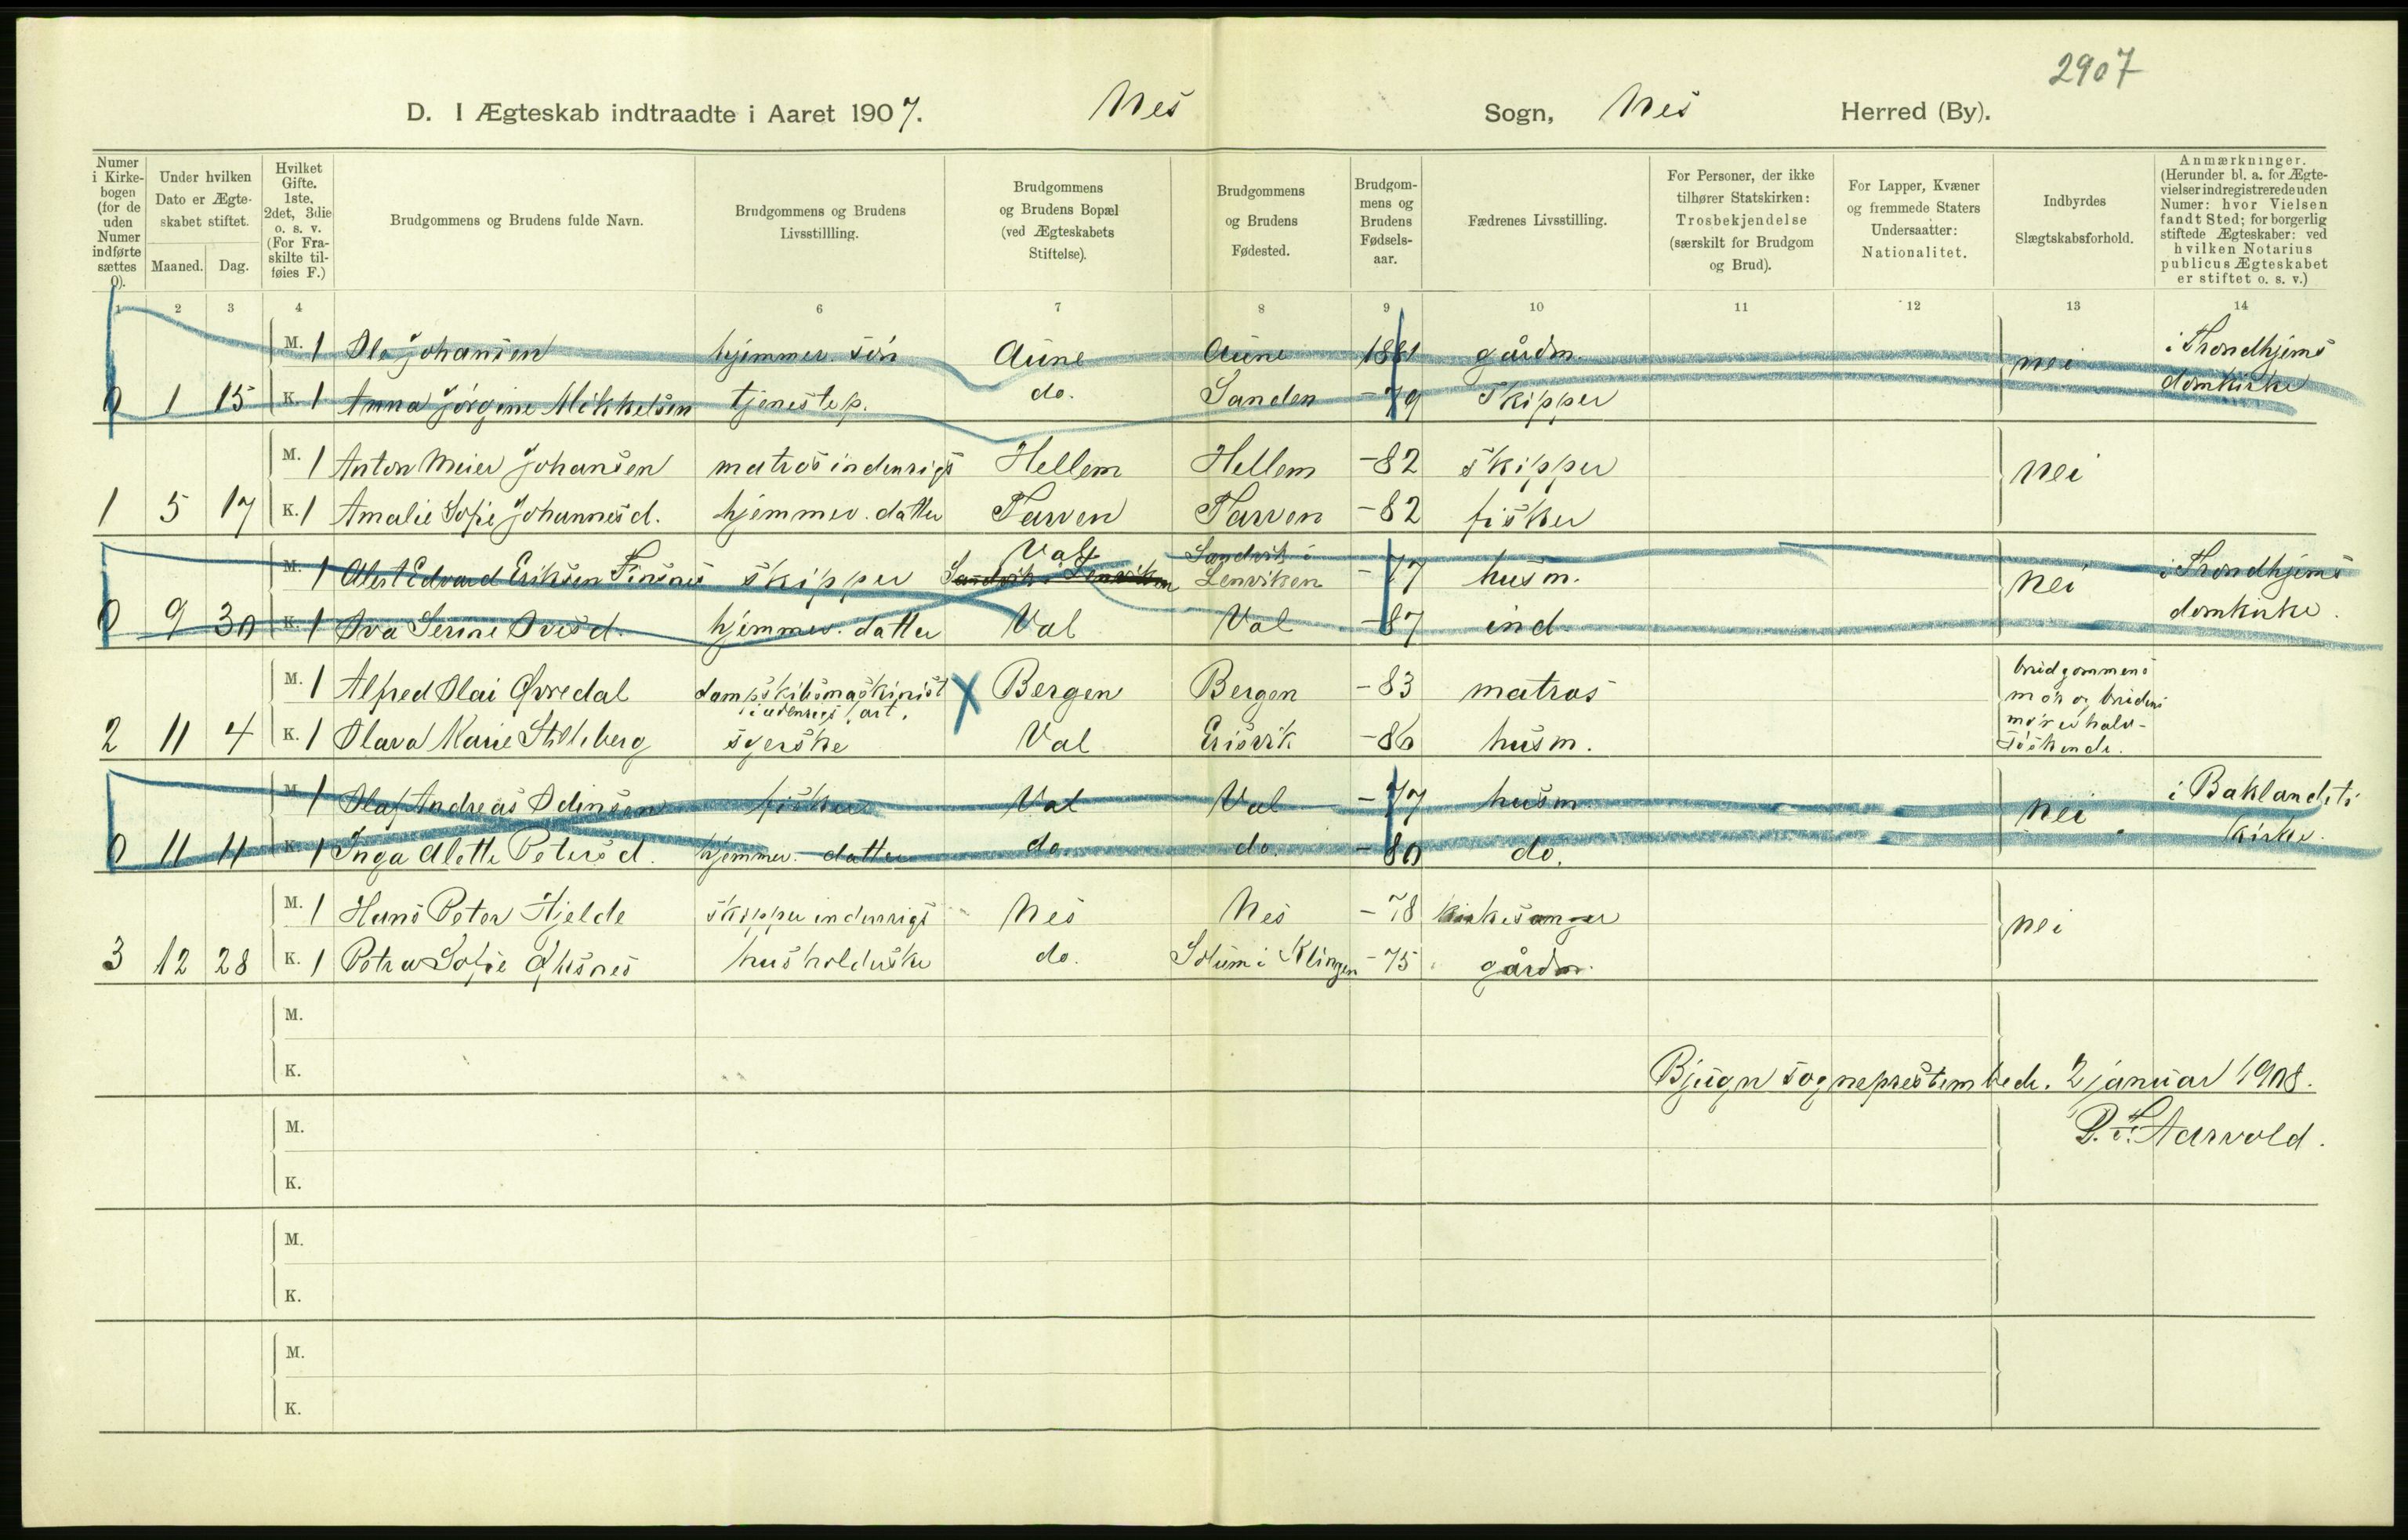 2907
D. I Ægteskab indtraadte i Aaret 1907. Nes Sogn, Nes Herred (By).
Numer i Kirkebogen (for de uden Numer indførte sættes 0).
Under hvilken Dato er Ægteskabet stiftet.
Maaned. Dag.
Hvilket Gifte. 1ste, 2det, 3die o. s. v. (For Fraskilte tilføies F.)
Brudgommens og Brudens fulde Navn.
Brudgommens og Brudens Livsstillling.
Brudgommens og Brudens Bopæl (ved Ægteskabets Stiftelse).
Brudgommens og Brudens Fødested.
Brudgommens og Brudens Fødselsaar.
Fædrenes Livsstilling.
For Personer, der ikke tilhører Statskirken: Trosbekjendelse (særskilt for Brudgom og Brud).
For Lapper, Kvæner og fremmede Staters Undersaatter: Nationalitet.
Indbyrdes Slægtskabsforhold.
Anmærkninger. (Herunder bl. a. for Ægtevielser indregistrerede uden Numer: hvor Vielsen fandt Sted; for borgerlig stiftede Ægteskaber: ved hvilken Notarius publicus Ægteskabet er stiftet o. s. v.)
1 2 3 4 6 7 8 9 10 11 12 13 14
M. 1 Ole Johansen hjemmev. søn Aune Aune 1881 gårdm. nei i Trondhjems
0 1 15 K. 1 Anna Jørgine Mikkelsen tjenestep. do. Sanden -79 skipper domkirke
M. 1 Anton Meier Johansen matros indenrigs Hellem Hellem -82 skipper nei
1 5 17 K. 1 Amalie Sofie Johannesd. hjemmev. datter Tarven Tarven -82 fisker
M. 1 Edvard Eriksen Finsnes skipper Val Sandvik i Lenviken Sandvik i Lenviken -77 husm. nei i Trondhjems
0 9 30 K. 1 Serine hjemmev. datter Val Val -87 ind. domkirke.
M. 1 Alfred Olai Øvredal dampskibsmaskinist i udenrigs fart. X Bergen Bergen -83 matros brudgommens mor og brudens mor er halvsøskende.
2 11 4 K. 1 Olava Marie syerske Val Erisvik -86 husm.
M. 1 Olaf Andreas Odinsen fisker Val Val -77 husm. nei i Baklandets
0 11 11 K. 1 Inga Alette Petersd. hjemmev. datter do. do. -80 do. kirke.
M. 1 Hans Peter Hjelde skipper indenrigs Nes Nes -78 kirkesanger nei
3 12 28 K. 1 Petra Sofie husholderske do. Solum i Klingen -75 gårdm.
M.
K.
Bjugn sogneprestembede. 2 januar 1908.
M.
Aarvold.
K.
M.
K.
M.
K.